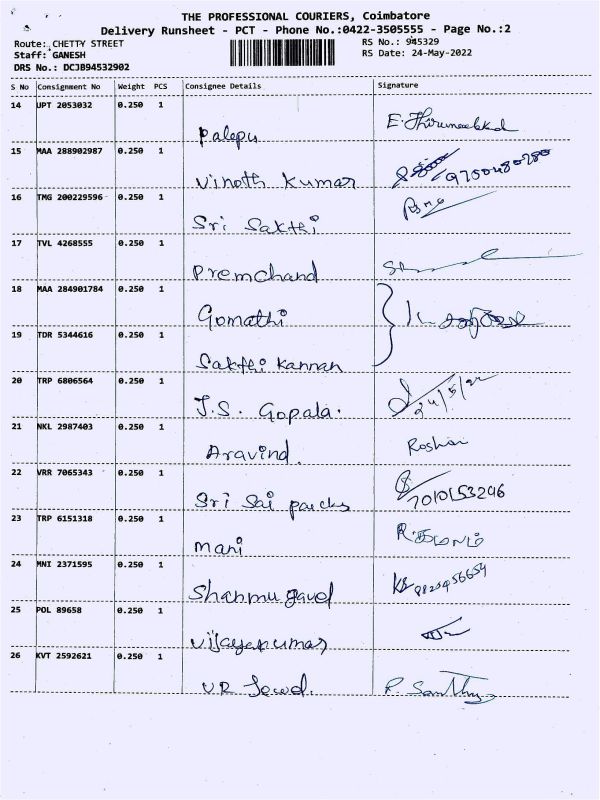 THE PROFESSIONAL COURIERS, Coimbatore
Delivery Runsheet - PCT - Phone No.:0422-3505555 - Page No.:2
Route: CHETTY STREET
RS No.: 945329
Staff: GANESH
RS Date: 24-May-2022
DRS No.: DCJB94532902
S No Consignment No Weight PCS Consignee Details Signature
14 UPT 2053032 0.250 1
Palepu
15 MAA 288902987 0.250 1
Vinoth Kumar 9750480780
16 TMG 200229596 0.250 1
Sri Sakthi
17 TVL 4268555 0.250 1
Premchand
18 MAA 284901784 0.250 1
Gomathi
19 TDR 5344616 0.250 1
Sakthi Kannan
20 TRP 6806564 0.250 1
J.S. Gopala. 24/5/22
21 NKL 2987403 0.250 1
Aravind. Roshini
22 VRR 7065343 0.250 1
Sri Sai packs 7010153296
23 TRP 6151318 0.250 1
Mani
24 MNI 2371595 0.250 1
Shanmugavel 9823456654
25 POL 89658 0.250 1
Vijayakumar
26 KVT 2592621 0.250 1
VR Jewel.